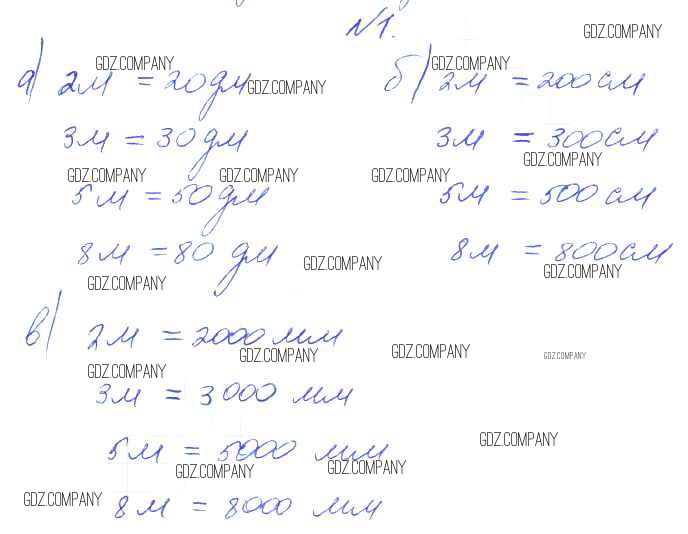 №1.
GDZ.COMPANY
а) 2м = 20дм
б) 2м = 200см
GDZ.COMPANY
GDZ.COMPANY
GDZ.COMPANY
3м = 30дм
3м = 300см
GDZ.COMPANY
GDZ.COMPANY
GDZ.COMPANY
GDZ.COMPANY
5м = 50дм
5м = 500см
8м = 80 дм
8м = 800см
GDZ.COMPANY
GDZ.COMPANY
GDZ.COMPANY
в) 2м = 2000мм
GDZ.COMPANY
GDZ.COMPANY
GDZ.COMPANY
GDZ.COMPANY
3м = 3000 мм
GDZ.COMPANY
5м = 5000 мм
GDZ.COMPANY
GDZ.COMPANY
GDZ.COMPANY
8м = 8000 мм